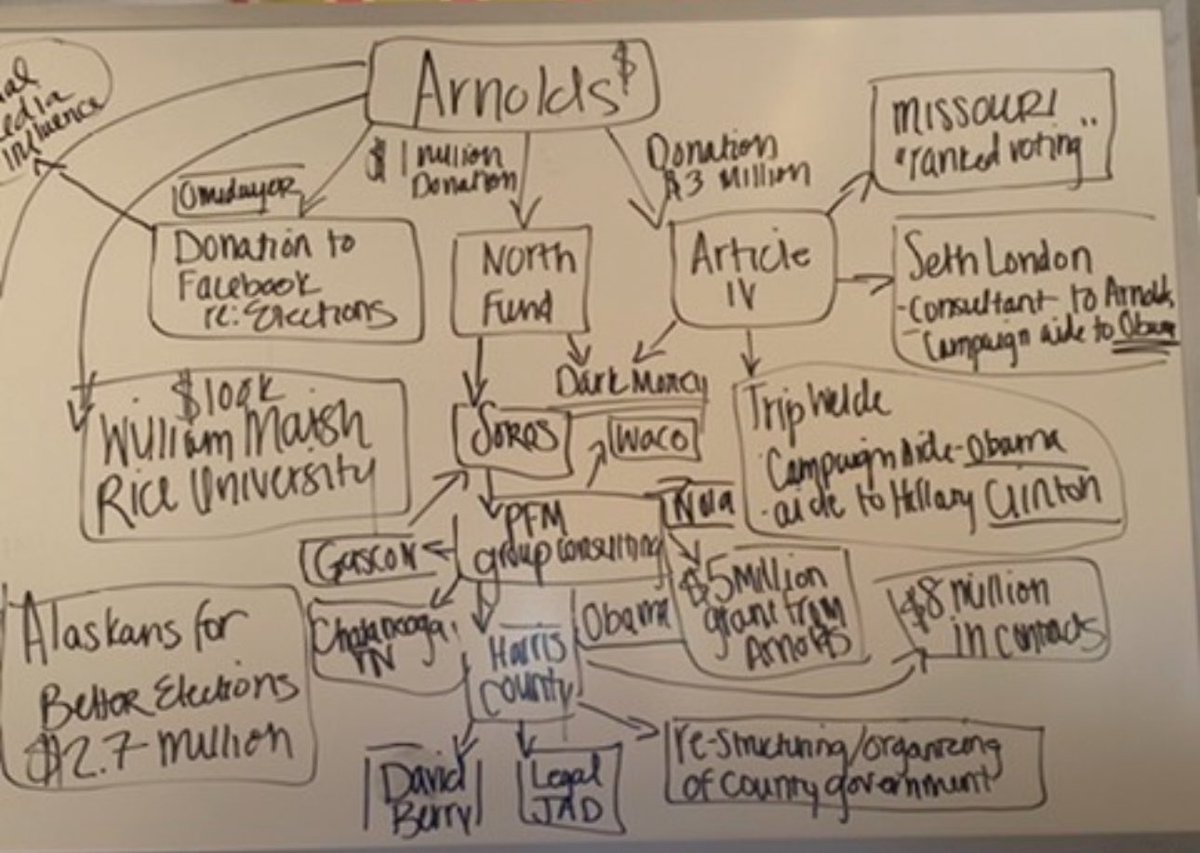 Media
influence
Arnolds $
$ 1 million
Donation
Donation
$3 Million
Missouri
"ranked voting"
Omidayer
Donation to
Facebook
re: Elections
North
Fund
Article
IV
Seth London
- Consultant to Arnolds
- Campaign aide to Obama
Dark Money
$100K
William Marsh
Rice University
Soros
Waco
Trip Welde
Campaign Aide - Obama
- aide to Hillary Clinton
Nola
PFM
group consulting
Gascon
$5 Million
grant from
Arnolds
$8 million
in contracts
Alaskans for
Better Elections
$2.7 million
TN
Obama
Harris
County
David
Berry
Legal
JAD
re-structuring/organizing
of county government